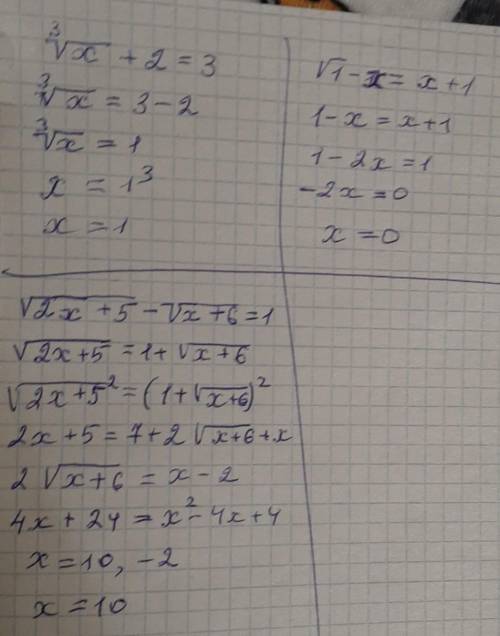 ∛x + 2 = 3
∛x = 3 - 2
∛x = 1
x = 1³
x = 1
√1 - x = x + 1
1 - x = x + 1
1 - 2x = 1
-2x = 0
x = 0
√2x + 5 - √x + 6 = 1
√2x + 5 = 1 + √x + 6
√2x + 5² = (1 + √x + 6)²
2x + 5 = 7 + 2√x + 6 + x
2√x + 6 = x - 2
4x + 24 = x² - 4x + 4
x = 10, -2
x = 10